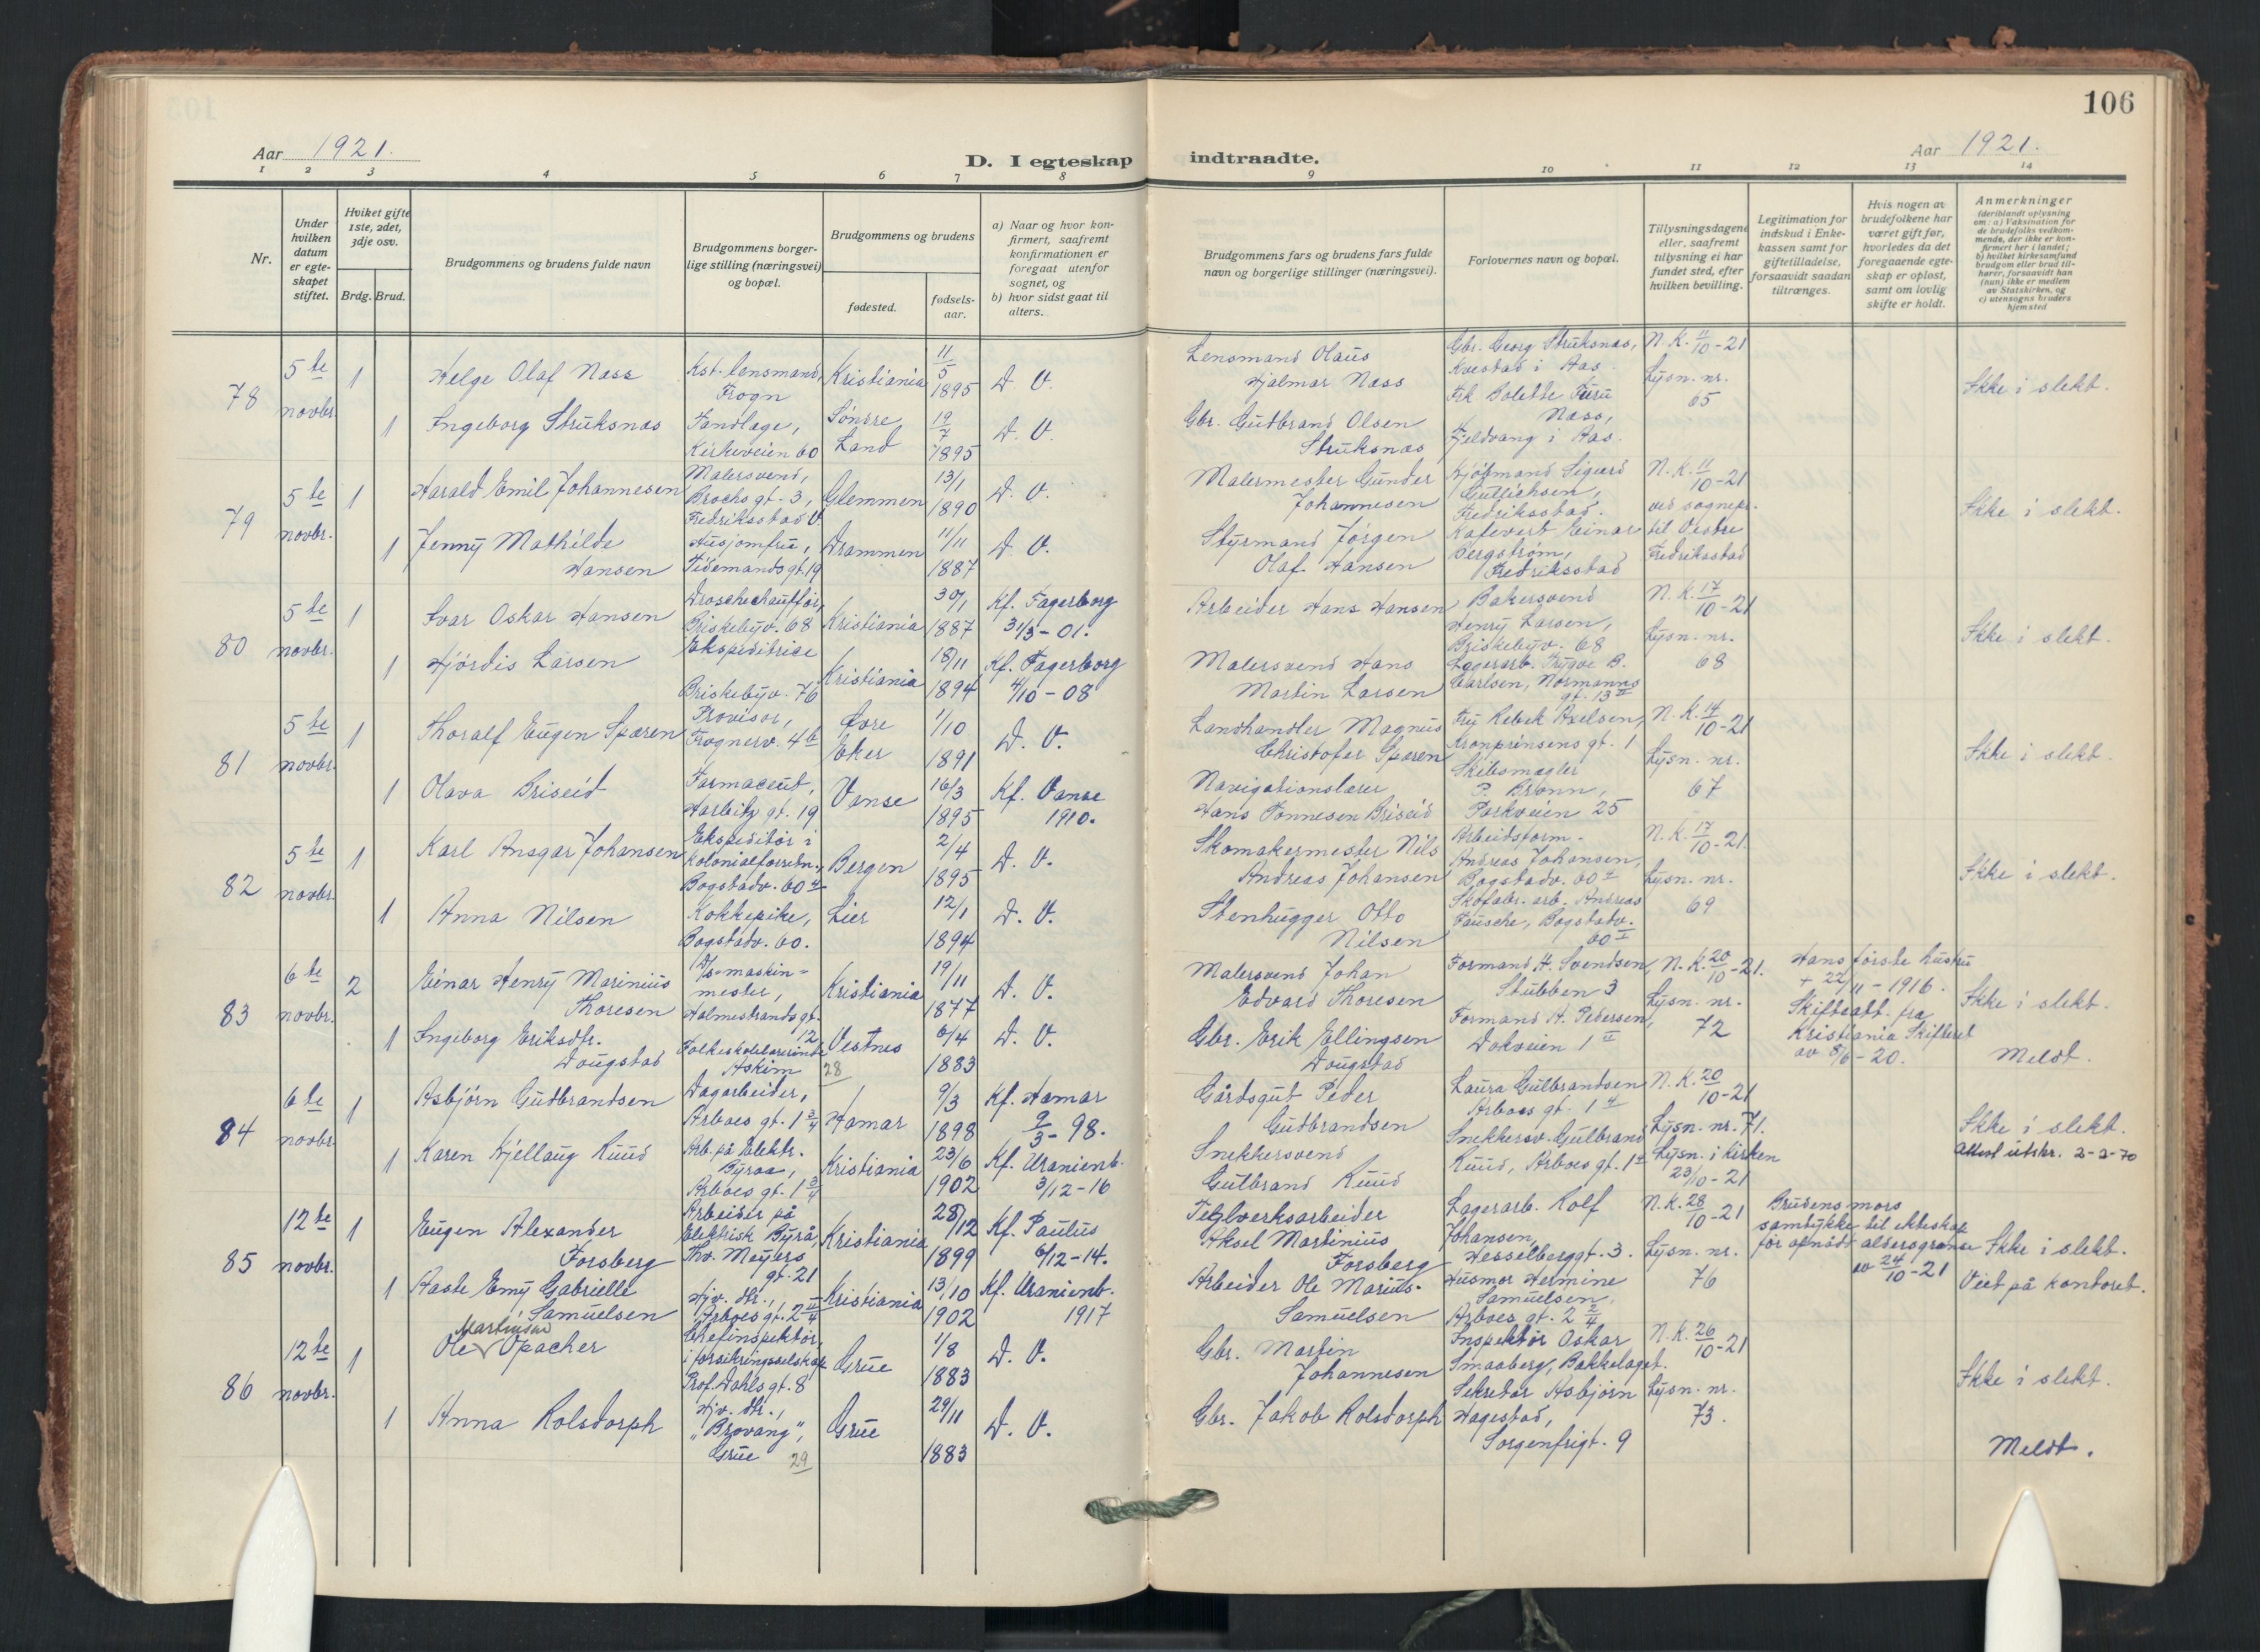 106
Aar 1921.
D. I egteskap indtraadte.
Aar 1921.
1 2 3 4 5 6 7 8 9 10 11 12 13 14
Nr.
Under hvilken datum er egteskapet stiftet.
Hviket gifte 1ste, 2det, 3dje osv.
Brdg. Brud.
Brudgommens og brudens fulde navn
Brudgommens borgerlige stilling (næringsvei) og bopæl.
Brudgommens og brudens
fødested.
fødselsaar.
a) Naar og hvor konfirmert, saafremt konfirmationen er foregaat utenfor sognet, og
b) hvor sidst gaat til alters.
Brudgommens fars og brudens fars fulde navn og borgerlige stillinger (næringsvei).
Forlovernes navn og bopæl.
Tillysningsdagene eller, saafremt tillysning ei har fundet sted, efter hvilken bevilling.
Legitimation for indskud i Enkekassen samt for giftetilladelse, forsaavidt saadan tiltrænges.
Hvis nogen av brudefolkene har været gift før, hvorledes da det foregaaende egteskap er opløst, samt om lovlig skifte er holdt.
Anmerkninger
(deriblandt oplysning om: a) Vaksination for de brudefolks vedkommende, der ikke er konfirmert her i landet; b) hvilket kirkesamfund brudgom eller brud tilhører, forsaavidt han (hun) ikke er medlem av Statskirken, og c) utensogns bruders hjemsted
78
5te novbr.
1
Helge Olaf Næss
Kst. lensmand, Frogn
Kristiania
11/5 1895
D. V.
Lensmand Olaus Hjalmar Næss
Gbr. Georg Struksnæs, Kvestad i Aas.
Frk Bolette Furu Næss, Fjeldvang i Aas.
N. K. 11/10-21
Lysn. nr. 65
Ikke i slekt.
1
Ingeborg Struksnæs
Tandlæge, Kirkeveien 60
Søndre Land
19/7 1895
D. V.
Gbr. Gudbrand Olsen Struksnæs
79
5te novbr.
1
Harald Emil Johannesen
Malersvend, Brochs gt. 3, Fredriksstad V
Glemmen
13/1 1890
D. V.
Malermester Gunder Johannesen
Kjøbmand Sigurd Gullichsen, Fredriksstad.
Kafevert Einar Bergstrøm, Fredriksstad
N. K. 11/10-21
ved sognepr. til Vestre Fredriksstad
Ikke i slekt.
1
Jenny Mathilde Hansen
Husjomfru, Tidemands gt. 19
Drammen
11/11 1887
D. V.
Styrmand Jørgen Olaf Hansen
80
5te novbr.
1
Ivar Oskar Hansen
Droschechauffør, Briskebyv. 68
Kristiania
30/1 1887
Kf. Fagerborg 31/3-01.
Arbeider Hans Hansen
Bakersvend Henry Larsen, Briskebyv. 68
Lagerarb. Trygve B. Carlsen, Normanns gt. 13 II
N. K. 17/10-21
Lysn. nr. 68
Ikke i slekt.
1
Hjördis Larsen
Ekspeditrice Briskebyv. 76
Kristiania
18/11 1894
Kf. Fagerborg 4/10-08
Malersvend Hans Martin Larsen
81
5te novbr.
1
Thoralf Eugen Sparen
Provisor, Frognerv. 4 b
Øvre Eker
1/10 1891
D. V.
Landhandler Magnus Christofer Sparen
Fru Rebek Axelsen, Kronprinsens gt. 1
Skibsmægler P. Brønn, Parkveien 25
N. K. 14/10-21
Lysn. nr. 67
Ikke i slekt.
1
Olava Briseid
Farmaceut, Harbitz gt. 19
Vanse
16/3 1895
Kf. Vanse 1910.
Navigationslærer Hans Tønnesen Briseid
82
5te novbr.
1
Karl Ansgar Johansen
Ekspeditør i kolonialforretn., Bogstadv. 60 4
Bergen
2/4 1895
D. V.
Skomakermester Nils Andreas Johansen
Arbeidsform. Andreas Johansen, Bogstadv. 60
Skofabr. arb. Andreas Fausche, Bogstadv. 60 I
N. K. 17/10-21.
Lysn. nr. 69
Ikke i slekt.
1
Anna Nilsen
Kokkepike, Bogstadv. 60.
Lier
12/1 1894
D. V.
Stenhugger Otto Nilsen
83
6te novbr.
2
Einar Henry Marinius Thoresen
D/s-maskinmester, Holmestrands gt. 12
Kristiania
19/11 1877
D. V.
Malersvend Johan Edvard Thoresen
Formand H. Svendsen, Stubben 3
Formand H. Pedersen, Dokveien 1 II
N. K. 20/10-21.
Lysn. nr. 72
Hans første hustru + 22/11-1916.
Skifteatt. fra Kristiania Skifteret av 8/6-20.
Ikke i slekt.
Meldt.
1
Ingeborg Eriksdtr. Dougstad
Folkeskolelærerinde Askim
28
Vestnes
6/4 1883
D. V.
Gbr. Erik Ellingsen Dougstad
84
6te novbr.
1
Asbjørn Gudbrandsen
Dagarbeider, Arboes gt. 1 3/4
Hamar
9/3 1898
Kf. Hamar 9/3-98.
Gårdsgut Peder Gudbrandsen
Laura Gulbrandsen Arboes gt. 1 4
Snekkersv. Gulbrand Ruud, Arboes gt. 1
N. K. 20/10-21
Lysn. nr. 71.
Lysn. i kirken 23/10-21
Ikke i slekt.
Attest utskr. 2-2-70
1
Karen Kjellaug Ruud
Arb. på Elektr. Byraa, Arboes gt. 1 3/4
Kristiania
23/6 1902
Kf. Uranienb. 3/12-16
Snekkersvend Gulbrand Ruud
85
12te novbr.
1
Eugen Alexander Forsberg
Arbeider på Elektrisk Byrå, Thv. Meyers gt. 21
Kristiania
28/12 1899
Kf. Paulus 6/12-14.
Teglverksarbeider Aksel Martinius Forsberg
Lagerarb. Rolf Johansen, Hesselberggt. 3.
Husmor Hermine Samuelsen, Arboes gt. 2 2/4
N. K. 28/10-21
Lysn. nr. 76
Brudens mors samtykke til ekteskap før opnådd aldersgrænse av 24/10-21
Ikke i slekt.
Viet på kontoret.
1
Aaste Emy Gabrielle Samuelsen
Hjv. dtr., Arboes gt. 2 II/4
Kristiania
13/10 1902
Kf. Uranienb. 1917
Arbeider Ole Marius Samuelsen
86
12te novbr.
1
Martinsen
Ole Opacher
Chefinspektør i forsikringsselskap Prof. Dahls gt. 8
Grue
1/8 1883
D. V.
Gbr. Martin Johannesen
Inspektør Oskar Smaaberg, Bækkelaget.
Sekretær Asbjørn Hagestad, Sorgenfrigt. 9
N. K. 26/10-21
Lysn. nr. 73.
Ikke i slekt.
Meldt.
1
Anna Rolsdorph
Hjv. dtr., "Brovang", Grue
29
Grue
29/11 1883
D. V.
Gbr. Jakob Rolsdorph